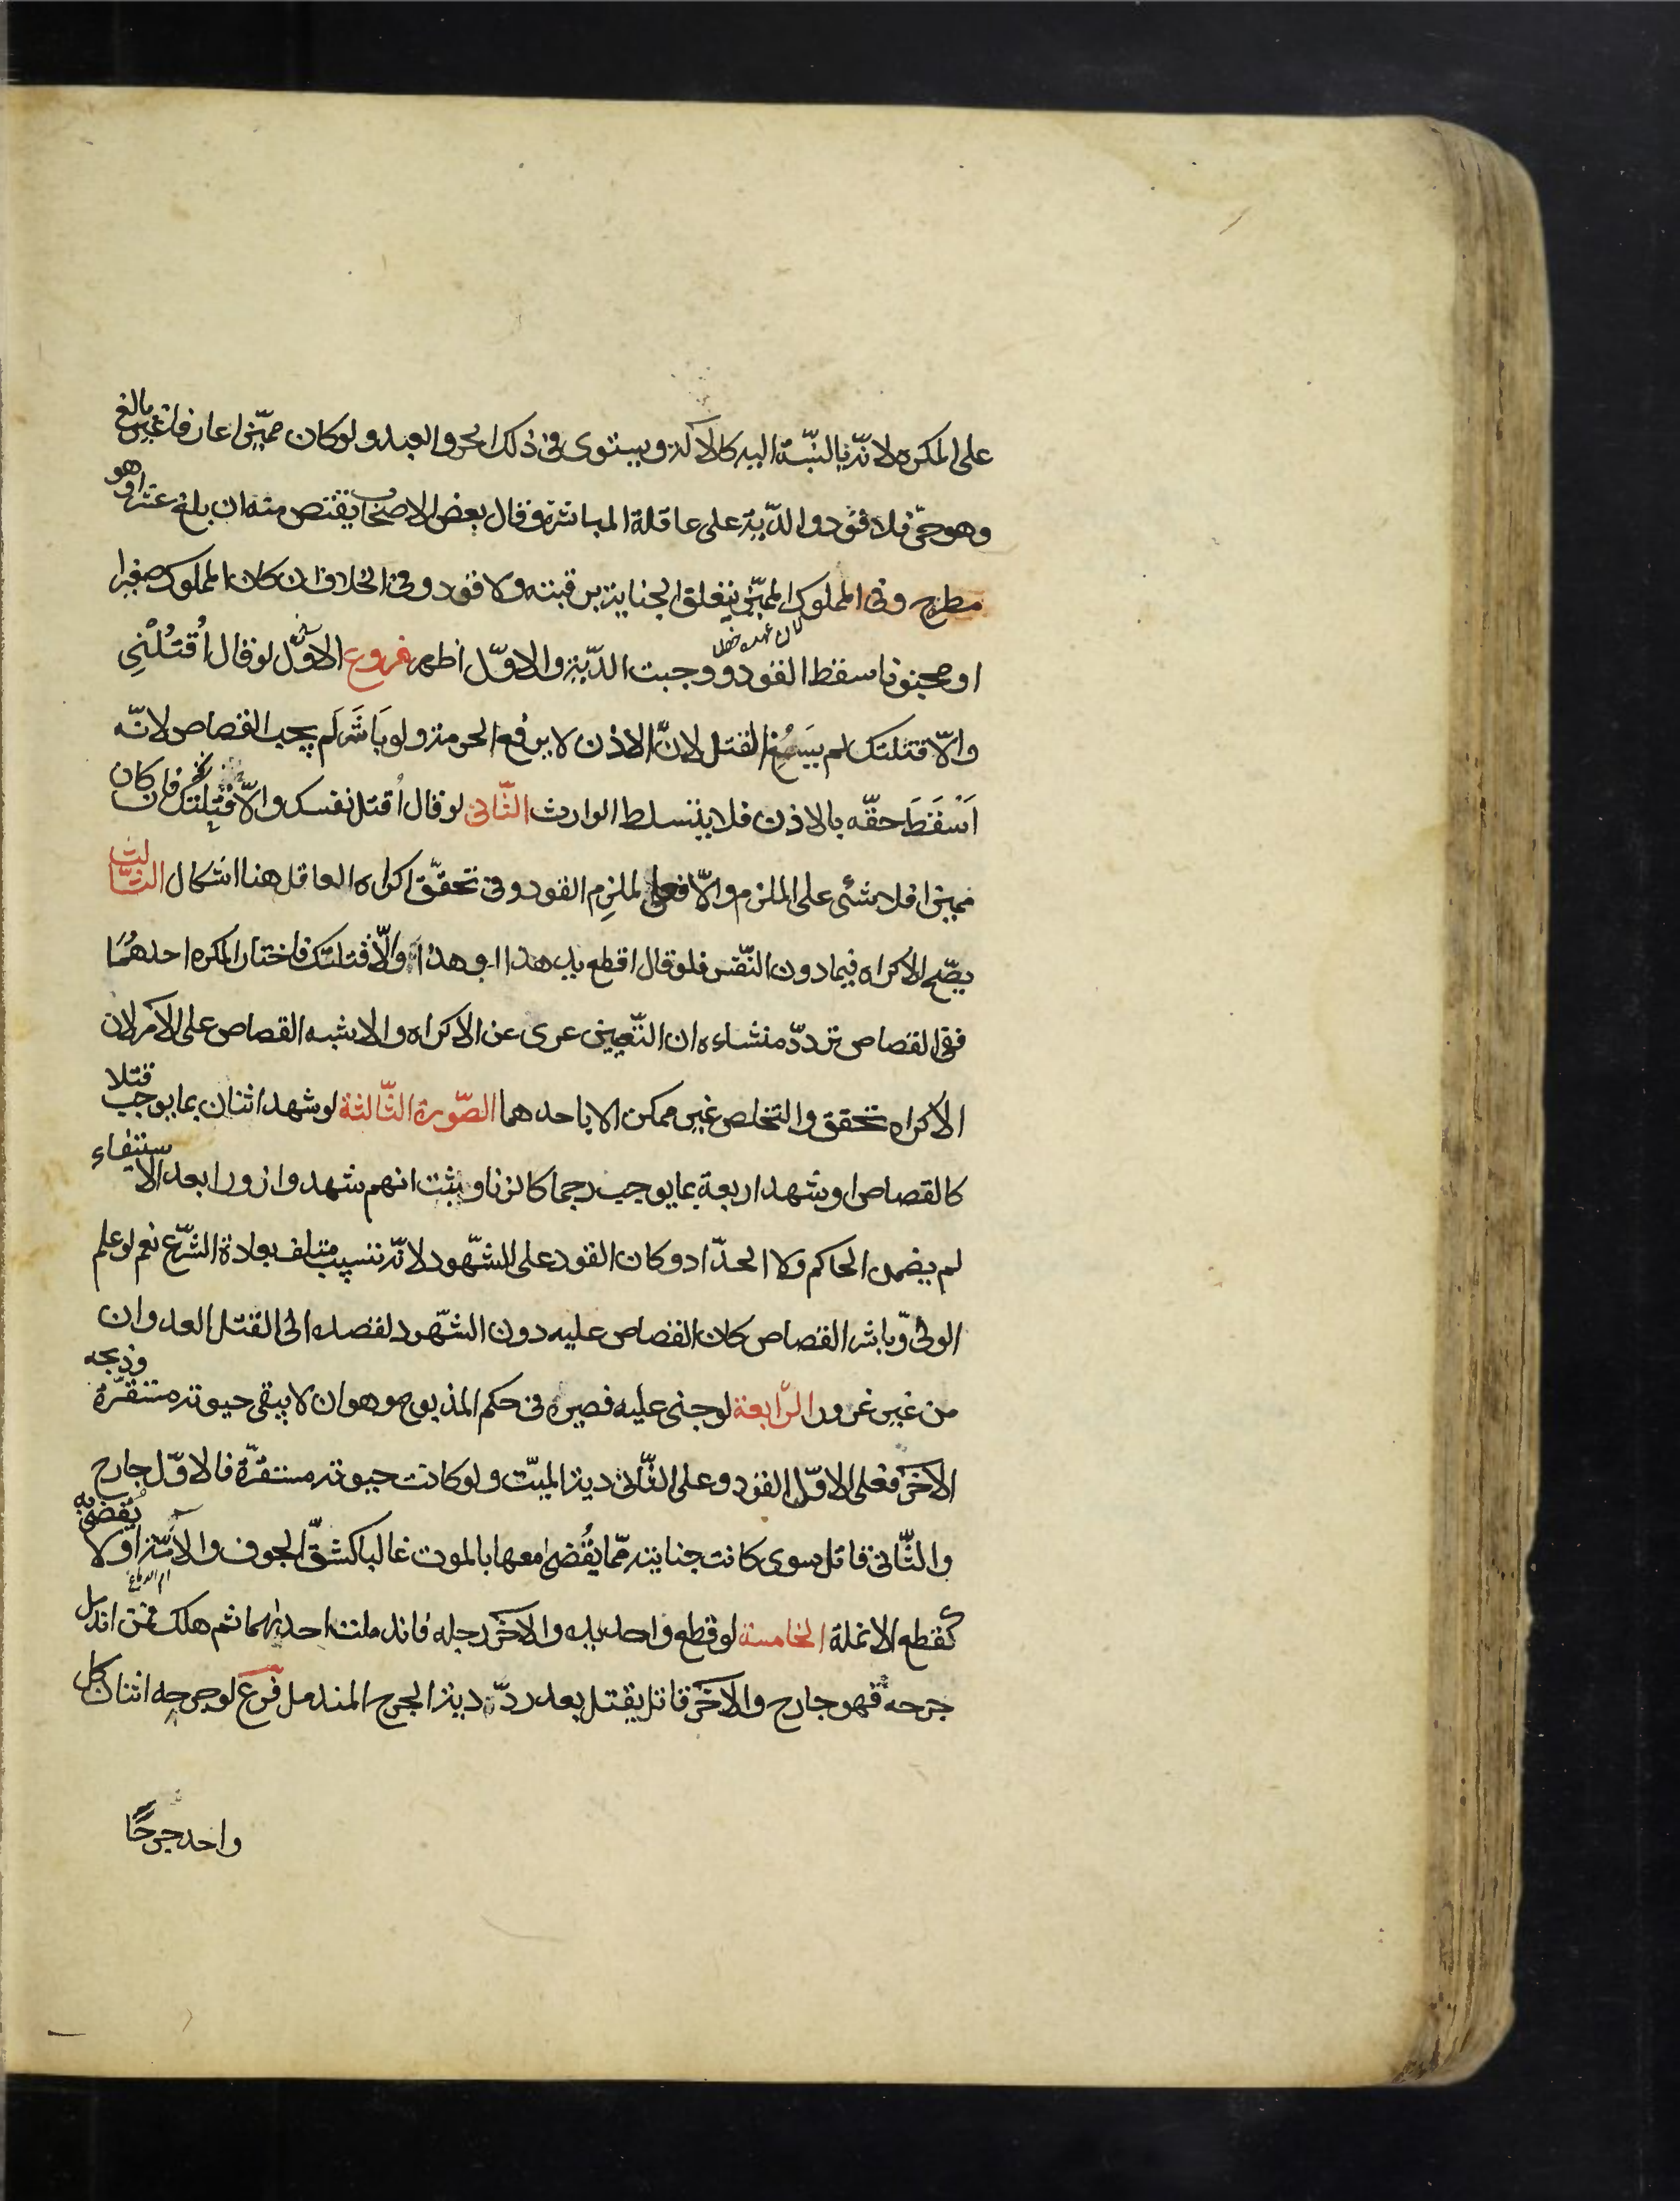 على المكره لانّه بالنّسبة اليه كالآلة ويستوى فى ذلك الحر والعبد ولو كان مميّزا عارفا غير بالغ
وهو حرّ فلا قود والدّية على عاقلة المباشرة وقال بعض الاصحاب يقتص منه ان بلغ عشرا وهو
مطرح وفى المملوك المميّز تتعلق الجناية برقبته ولا قود وفى الخلاف ان كان المملوك صغيرا
او مجنونا سقط القود ووجبت الدّية والاوّل اظهر فروع الاوّل لو قال اُقتُلْنِى
والّا قتلتك لم يَسُغِ القتل لانَّ الاذن لا يرفع الحرمة ولو بَاشَرَ لَم يجب القصاص لانّه
اَسْقَطَ حقّه بالاذن فلا يتسلط الوارث الثّانى لو قال اُقتل نفسك والّا قتلتك فان كان
مميزا فلا شئ على الملزم والّا فعلى الملزِم القود وفى تحقّق اكراه العاقل هنا اشكال الثّالث
يصّح الاكراه فيما دون النّفس فلو قال اقطع يد هذا او هذا والّا قتلتك فاختار المكره احدهُمَا
ففى القصاص تردّد منشاءه ان التّعيين عرى عن الاكراه والاشبه القصاص على الآمر لان
الاكراه تحقق والتخلص غير ممكن الا باحدهما الصّورة الثّالثة لو شهد اثنان بما يوجب قتلا
كالقصاص او شهد اربعة بما يوجب رجما كالزنا وثبت انهم شهدوا زورا بعد الاستيفاءِ
لم يضمن الحاكم ولا الحدّاد وكان القود على الشّهود لانّه تسبيب متلف بعادة الشّرع نعم لو علم
الولىّ وباشر القصاص كان القصاص عليه دون الشّهود لقصده الى القتل العدوان
من غير غرور الرّابعة لو جنى عليه فصيره فى حكم المذبوح وهو ان لا يبقى حيوته مستقرّة وذبحه
الآخَر فعلى الاوّل القود وعلى الثّانى دية الميّت ولو كانت حيوته مستقرّة فالاوّل جارح
والثّانى قاتل سوى كانت جنايته ممّا يُقْضى معها بالموت غالبا كشقّ الجوف والآمّة او لا يُقضى به
ام الدماغ
كقطع الانملة الخامسة لو قطع واحد يده والآخَر رجله فاندملت احديهما ثم هلك فمن اندمل
جرحه فهو جارح والآخَر قاتل يقتل بعد ردّ دية الجرح المندمل فرع لو جرحه اثنان كل
واحد جرحًا